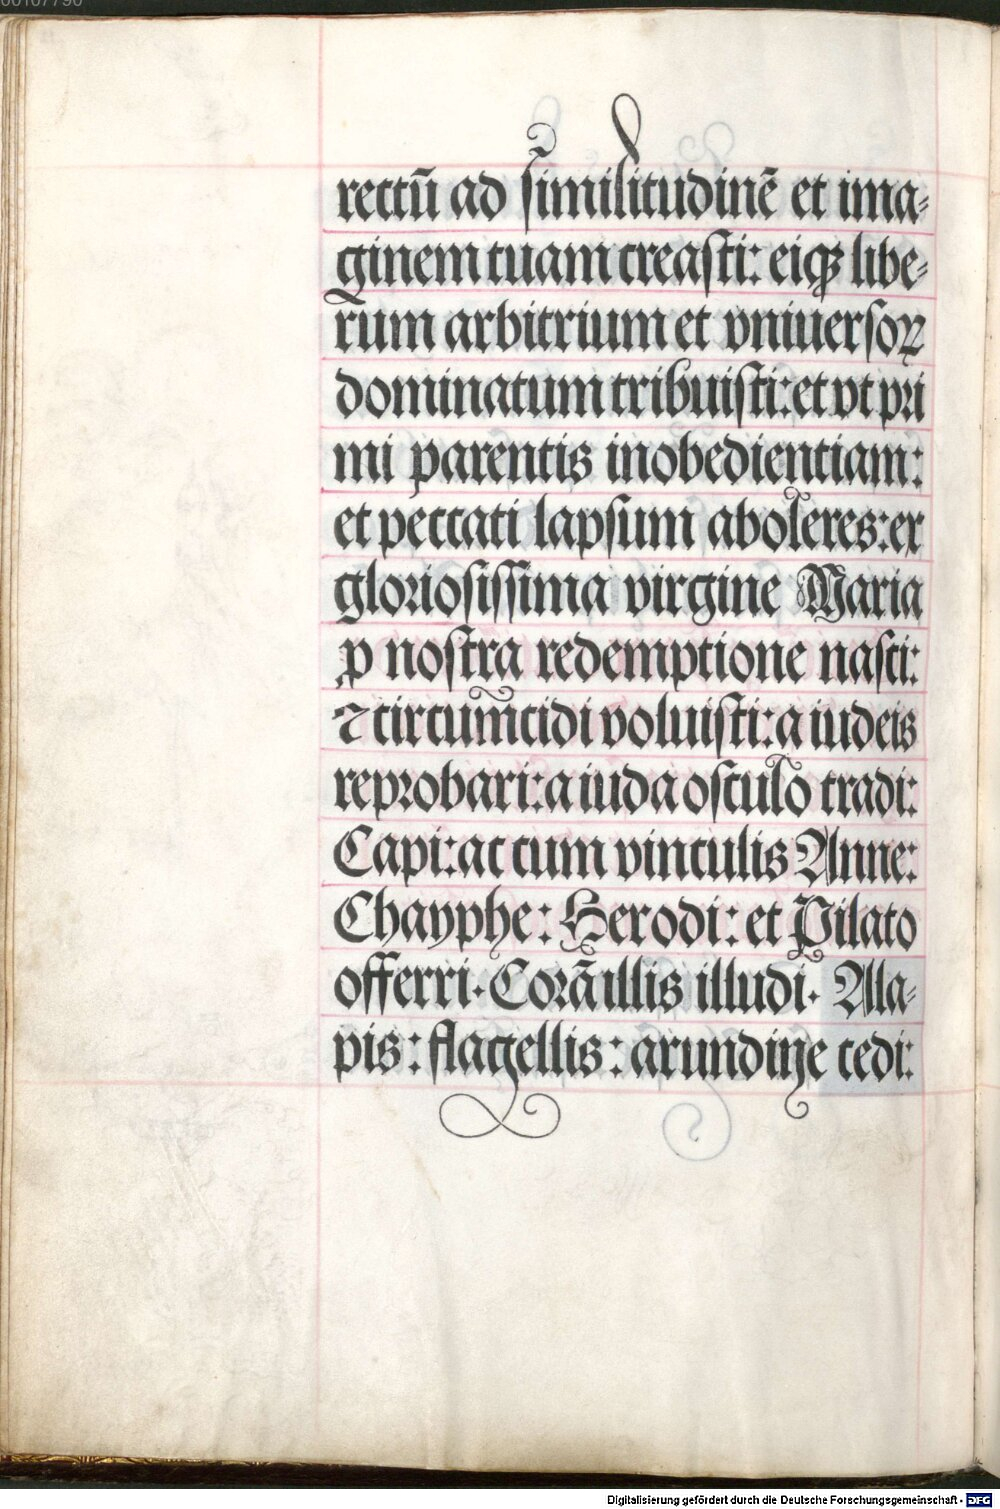 00107790
rectū ad similitudinē et ima-
ginem tuam creasti: eiqꝫ libe-
rum arbitrium et vniuersoꝝ
dominatum tribuisti: et vt pri
mi parentis inobedientiam:
et peccati lapsum aboleres: ex
gloriosissima virgine Maria
ꝓ nostra redemptione nasci:
⁊ circum̄cidi voluisti: a iudeis
reprobari: a iuda osculo tradi:
Capi: ac cum vinculis Anne:
Chayphe: Herodi: et Pilato
offerri. Corā illis illudi. Ala-
pis: flagellis: arundine cedi:
Digitalisierung gefördert durch die Deutsche Forschungsgemeinschaft - DFG